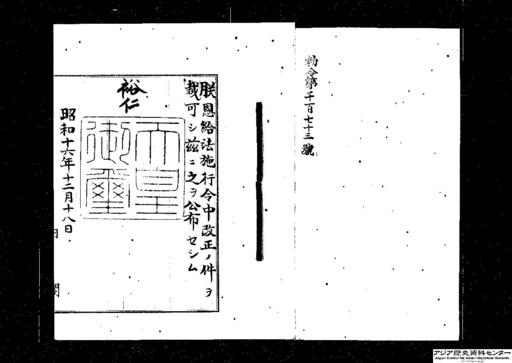 勅令第千百七十三號
朕恩給法施行令中改正ノ件ヲ
裁可シ茲ニ之ヲ公布セシム
裕仁
天皇
御璽
昭和十六年十二月十八日
内閣
アジア歴史資料センター
Japan Center for Asian Historical Records